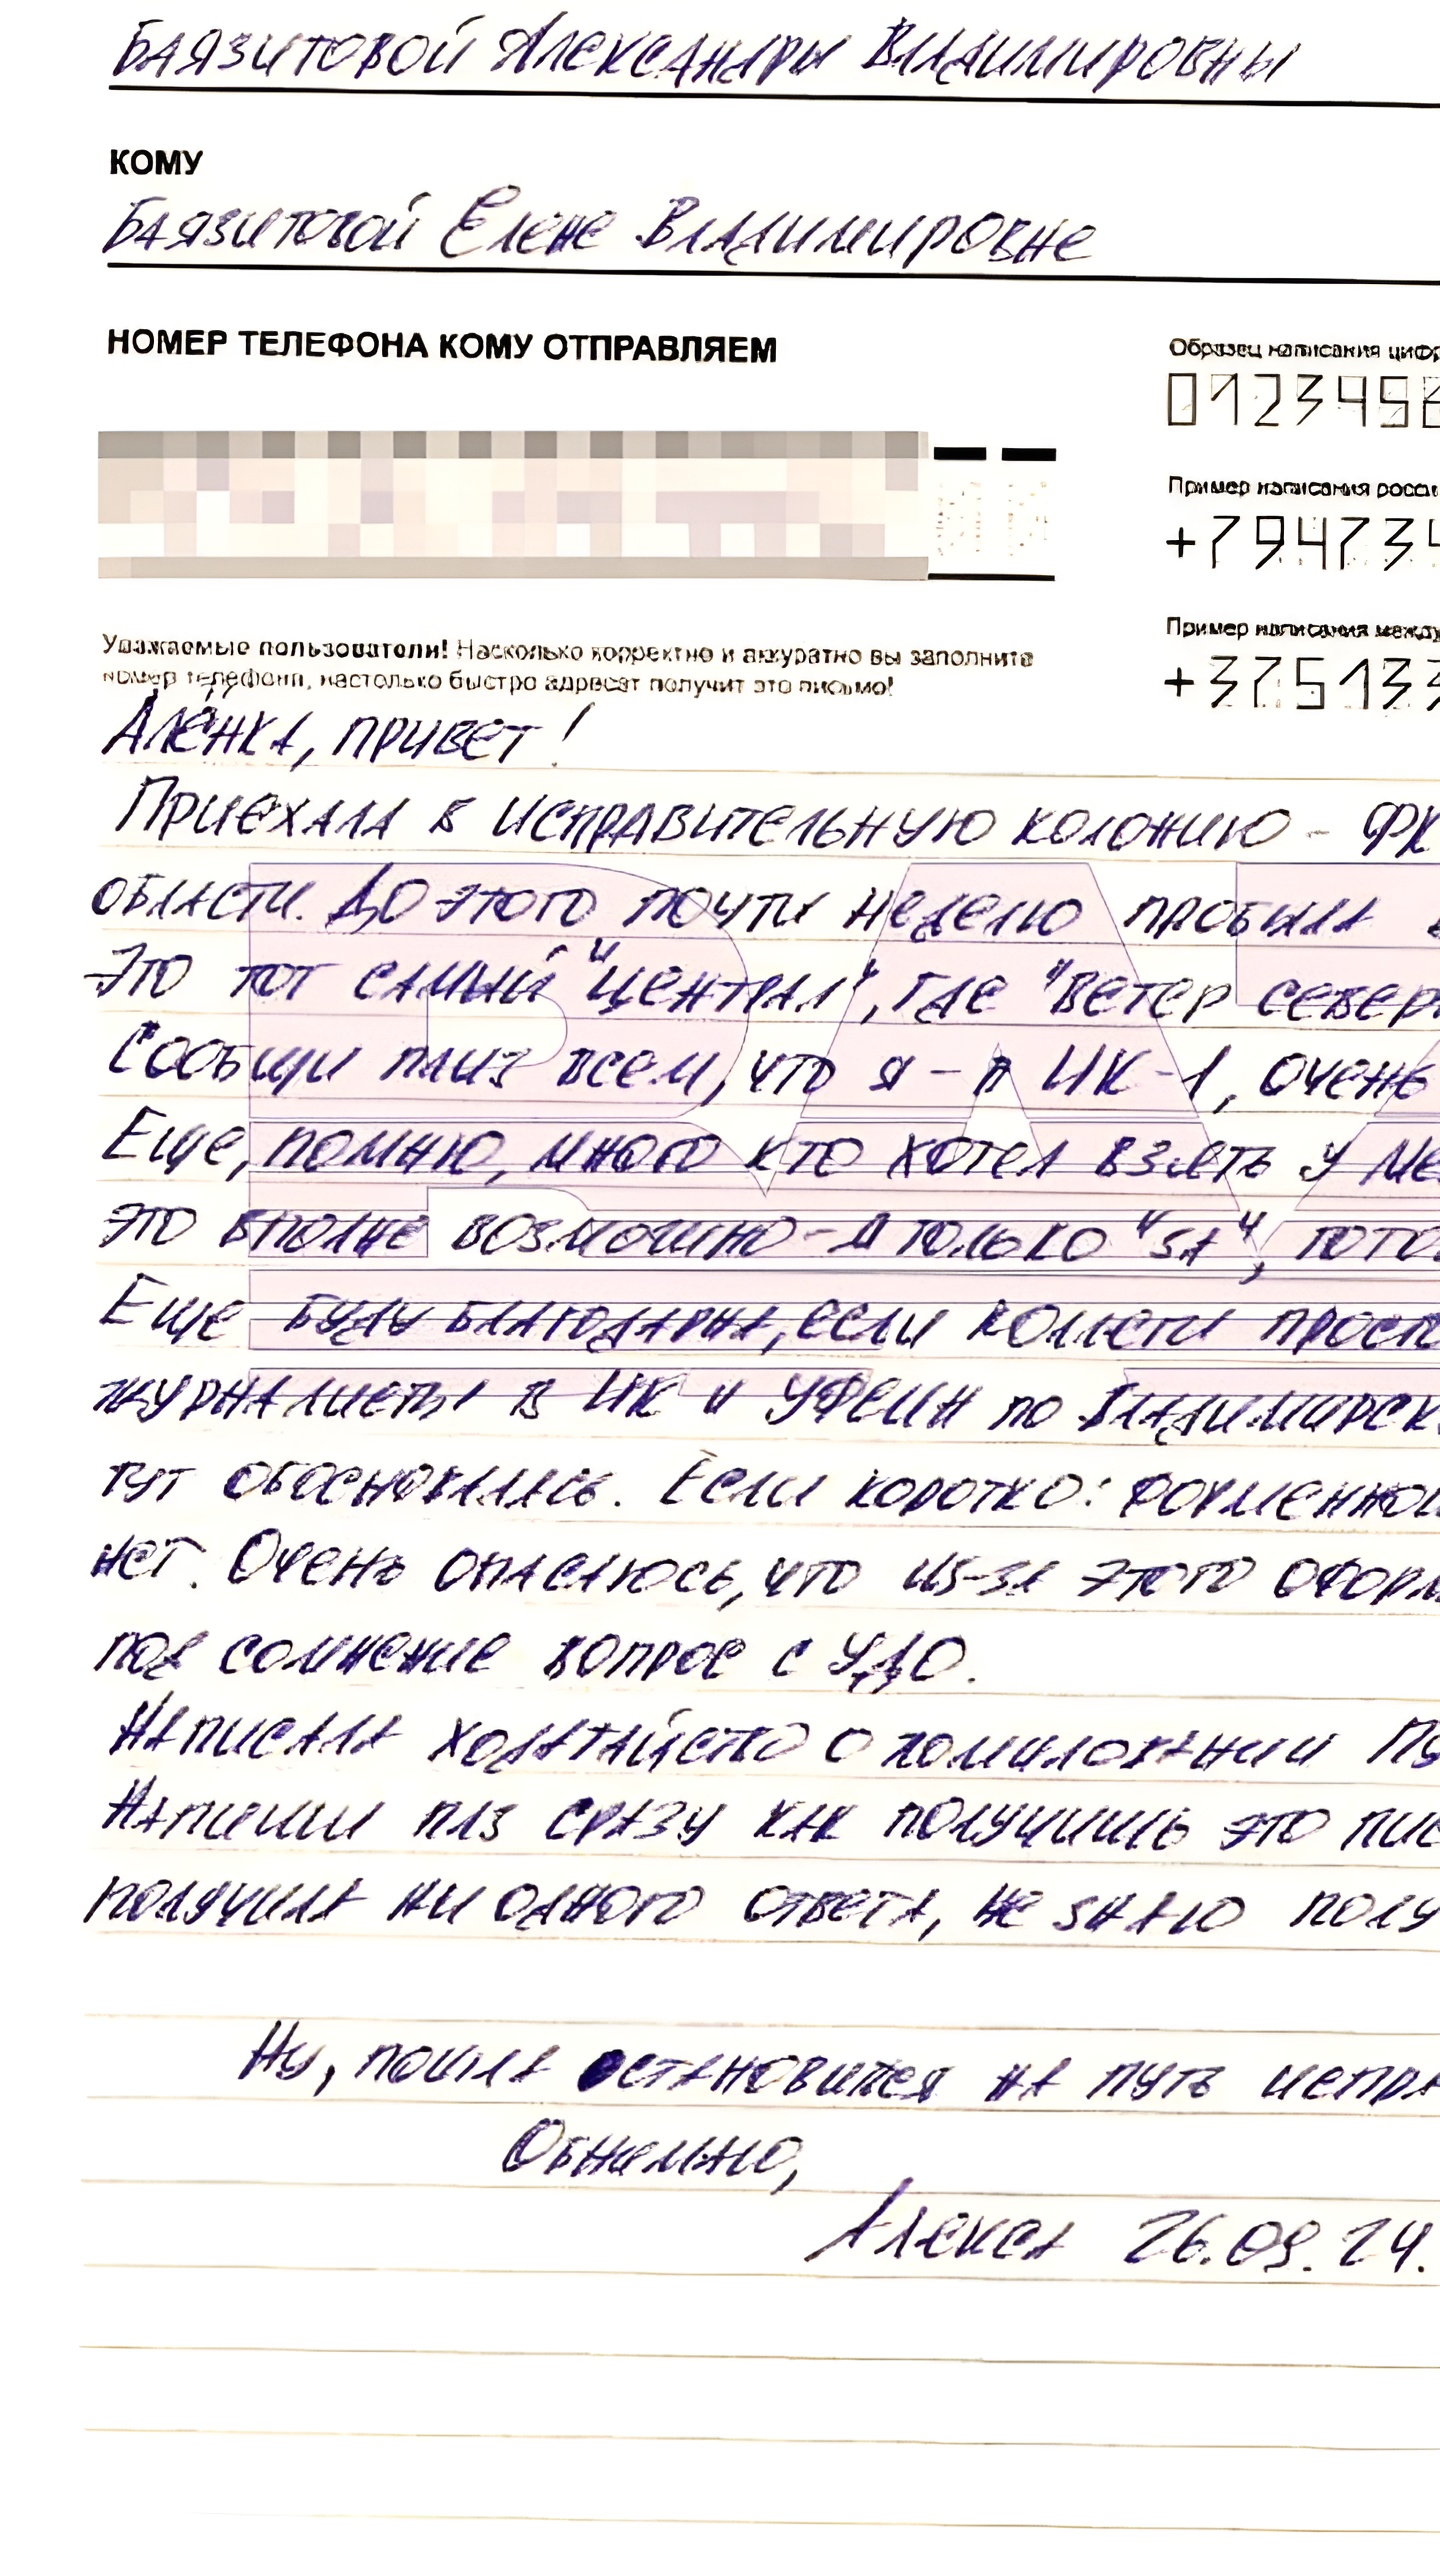 Баязитовой Александры Владимировны
КОМУ
Баязитовой Елене Владимировне
НОМЕР ТЕЛЕФОНА КОМУ ОТПРАВЛЯЕМ
Образец написания цифр
0123456
Пример написания росси
+794734
Уважаемые пользователи! Насколько корректно и аккуратно вы заполните
номер телефона, настолько быстро адресат получит это письмо!
Пример написания между
+375133
Алёнка, привет!
Приехала в исправительную колонию - ФК
области. До этого почти неделю пробыла
Это тот самый "централ", где "ветер север
Сообщи плиз всем, что я - в ИК-1, очень
Еще, помню, много кто хотел взять у ме
это вполне возможно - я только "за",
Еще буду благодарна, если коллеги прост
журналисты в ИК и УФСИН по Владимирск
тут обосновалась. Если коротко: форменной
нет. Очень опасаюсь, что из-за этого оформ
под сомнение вопрос с УДО.
Написала ходатайство о помиловании Пу
Напиши плз сразу как получишь это пис
получила ни одного ответа, не знаю полу
Ну, пошла остановится на путь испра
Обнимаю,
Алекса 26.09.24.